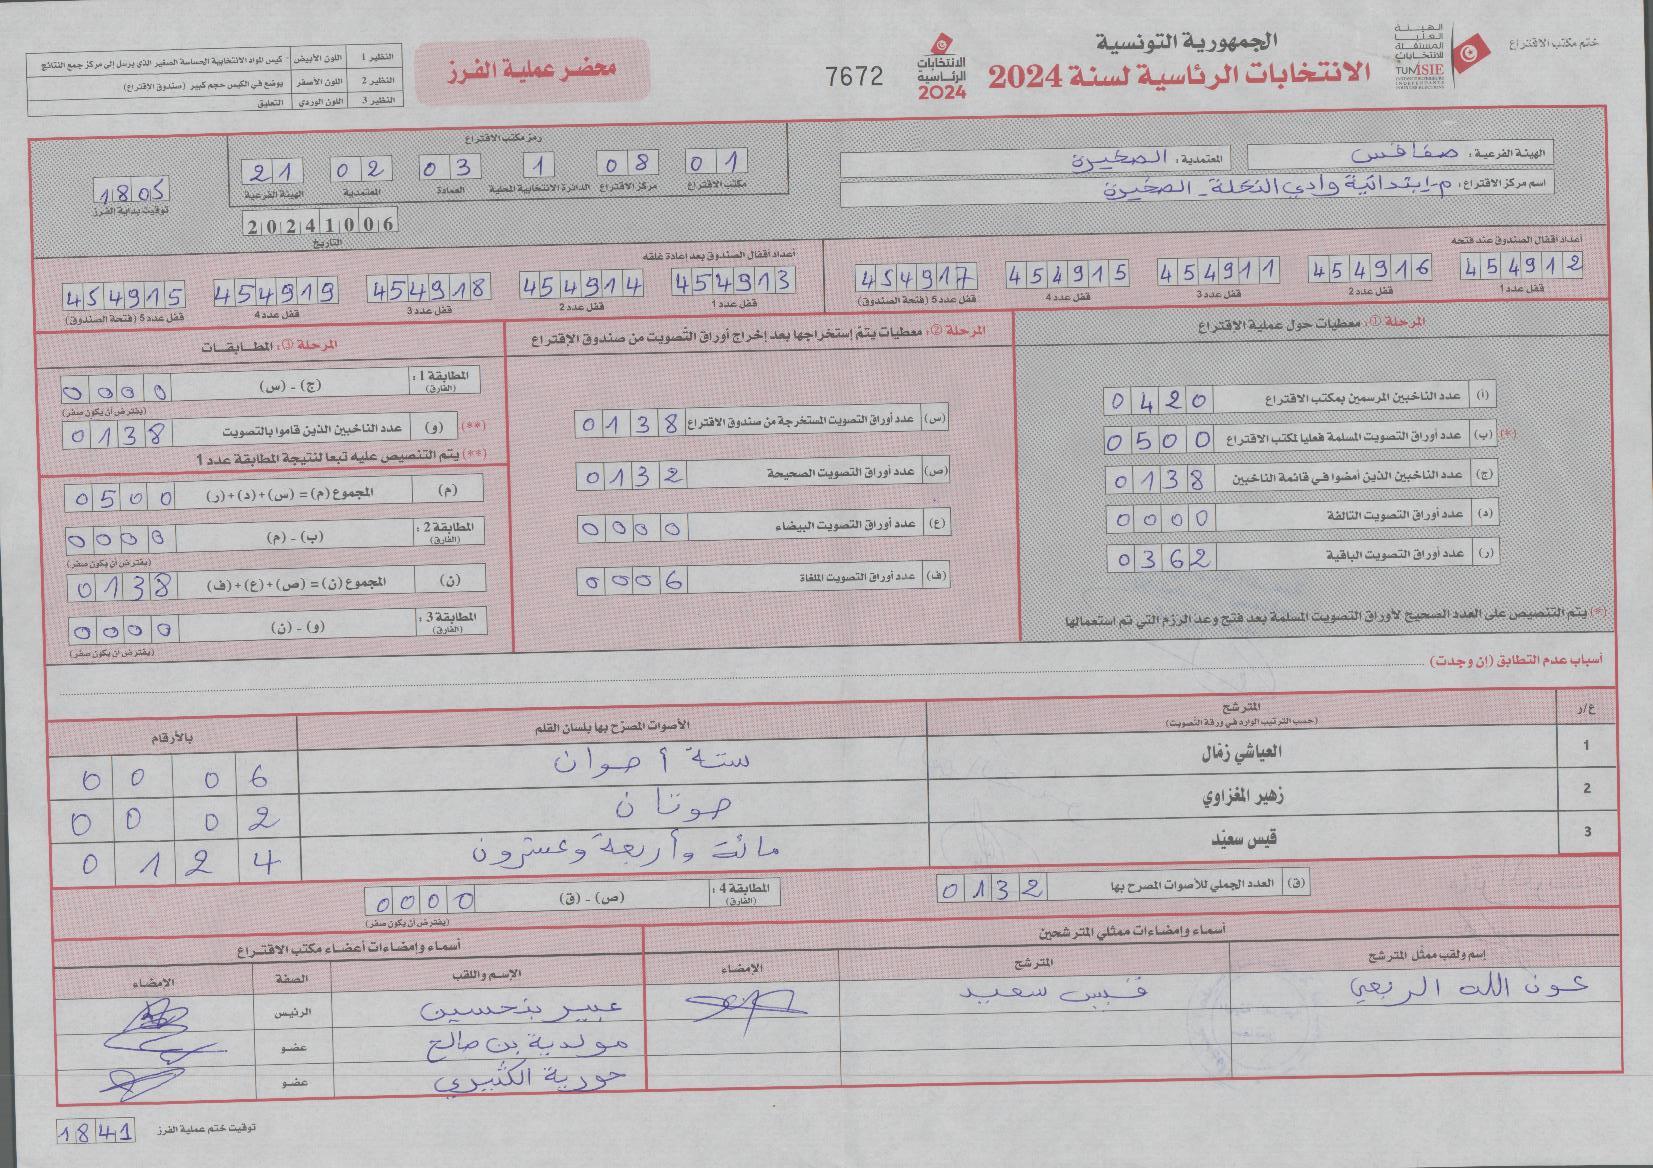 ختم مكتب الاقتراع
الهيئة العليا المستقلة للانتخابات
TUNISIE
الجمهورية التونسية
الانتخابات الرئاسية لسنة 2024
الانتخابات الرئاسية 2024
7672
محضر عملية الفرز
النظير 1 اللون الأبيض - كيس المواد الانتخابية الحساسة الصغير الذي يرسل إلى مركز جمع النتائج
النظير 2 اللون الأصفر يوضع في الكيس حجم كبير (صندوق الاقتراع)
النظير 3 اللون الوردي التعليق
الهيئة الفرعية: صفاقس
المعتمدية: الصخيرة
اسم مركز الاقتراع: م.ابتدائية وادي النخلة - الصخيرة
رمز مكتب الاقتراع
01 مكتب الاقتراع
08 مركز الاقتراع
1 الدائرة الانتخابية المحلية
03 العمادة
02 المعتمدية
21 الهيئة الفرعية
20241006
التاريخ
1805
توقيت بداية الفرز
أعداد أقفال الصندوق عند فتحه
454912 قفل عدد 1
454916 قفل عدد 2
454911 قفل عدد 3
454915 قفل عدد 4
454917 قفل عدد 5 (فتحة الصندوق)
أعداد أقفال الصندوق بعد إعادة غلقه
454913 قفل عدد 1
454914 قفل عدد 2
454918 قفل عدد 3
454919 قفل عدد 4
454915 قفل عدد 5 (فتحة الصندوق)
المرحلة ①: معطيات حول عملية الاقتراع
(أ) عدد الناخبين المرسمين بمكتب الاقتراع 0420
(*) (ب) عدد أوراق التصويت المسلمة فعليا لمكتب الاقتراع 0500
(ج) عدد الناخبين الذين أمضوا في قائمة الناخبين 0138
(د) عدد أوراق التصويت التالفة 0000
(ر) عدد أوراق التصويت الباقية 0362
(*) يتم التنصيص على العدد الصحيح لأوراق التصويت المسلمة بعد فتح وعد الرزم التي تم استعمالها
المرحلة ②: معطيات يتم إستخراجها بعد إخراج أوراق التصويت من صندوق الإقتراع
(س) عدد أوراق التصويت المستخرجة من صندوق الاقتراع 0138
(ص) عدد أوراق التصويت الصحيحة 0132
(ع) عدد أوراق التصويت البيضاء 0000
(ف) عدد أوراق التصويت الملغاة 0006
المرحلة ③: المطابقات
المطابقة 1: (الفارق) (ج) - (س) 0000
(يفترض أن يكون صفر)
(**) (و) عدد الناخبين الذين قاموا بالتصويت 0138
(**) يتم التنصيص عليه تبعا لنتيجة المطابقة عدد 1
(م) المجموع (م) = (س) + (د) + (ر) 0500
المطابقة 2: (الفارق) (ب) - (م) 0000
(يفترض أن يكون صفر)
(ن) المجموع (ن) = (ص) + (ع) + (ف) 0138
المطابقة 3: (الفارق) (و) - (ن) 0000
(يفترض أن يكون صفر)
أسباب عدم التطابق (إن وجدت)
ع/ر المترشح (حسب الترتيب الوارد في ورقة التصويت) الأصوات المصرح بها بلسان القلم بالأرقام
1 العياشي زمال ستة أصوات 0006
2 زهير المغزاوي صوتان 0002
3 قيس سعيد مائة وأربعة وعشرون 0124
(ق) العدد الجملي للأصوات المصرح بها 0132
المطابقة 4: (الفارق) (ص) - (ق) 0000
(يفترض أن يكون صفر)
أسماء وإمضاءات ممثلي المترشحين
إسم ولقب ممثل المترشح المترشح الإمضاء
عون الله الربعي قيس سعيد
أسماء وإمضاءات أعضاء مكتب الاقتراع
الإسم واللقب الصفة الإمضاء
عبير بنحسين الرئيس
مولدية بن صالح عضو
حورية الكثيري عضو
توقيت ختم عملية الفرز 1841